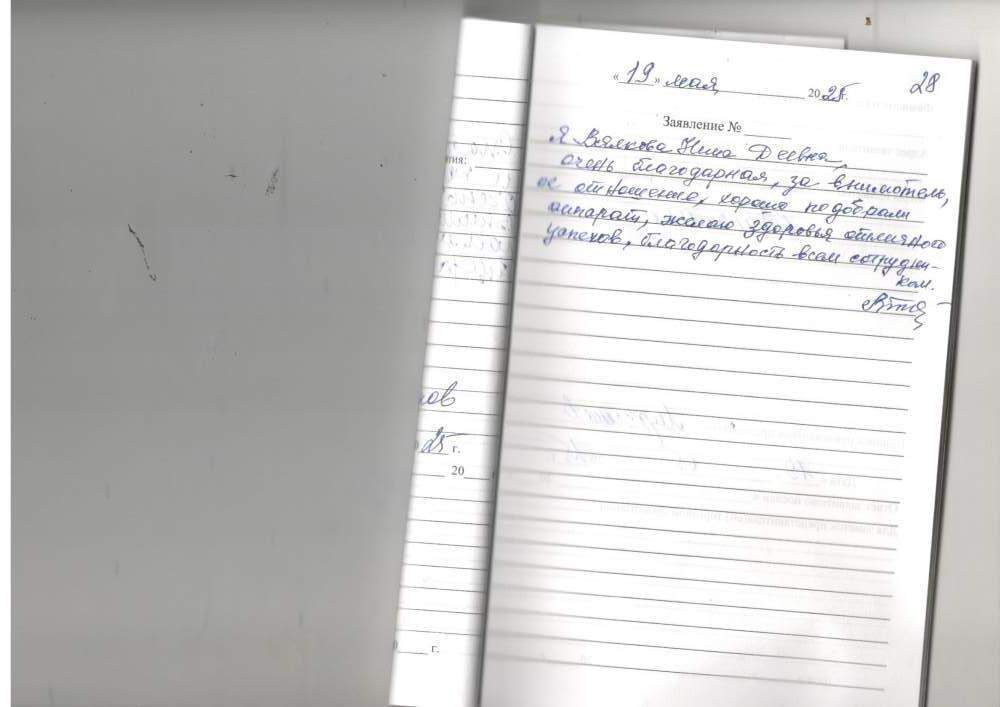 28
« 19 » мая 2025г.
Заявление №
Я Вялкова Нина Деевна,
очень благодарная, за внимотель,
ое отношение, хорошо подобрали
аппарат, желаю здоровья отличного
успехов, благодарность всем сотрудни-
кам.
ния:
ков
25 г.
20
г.